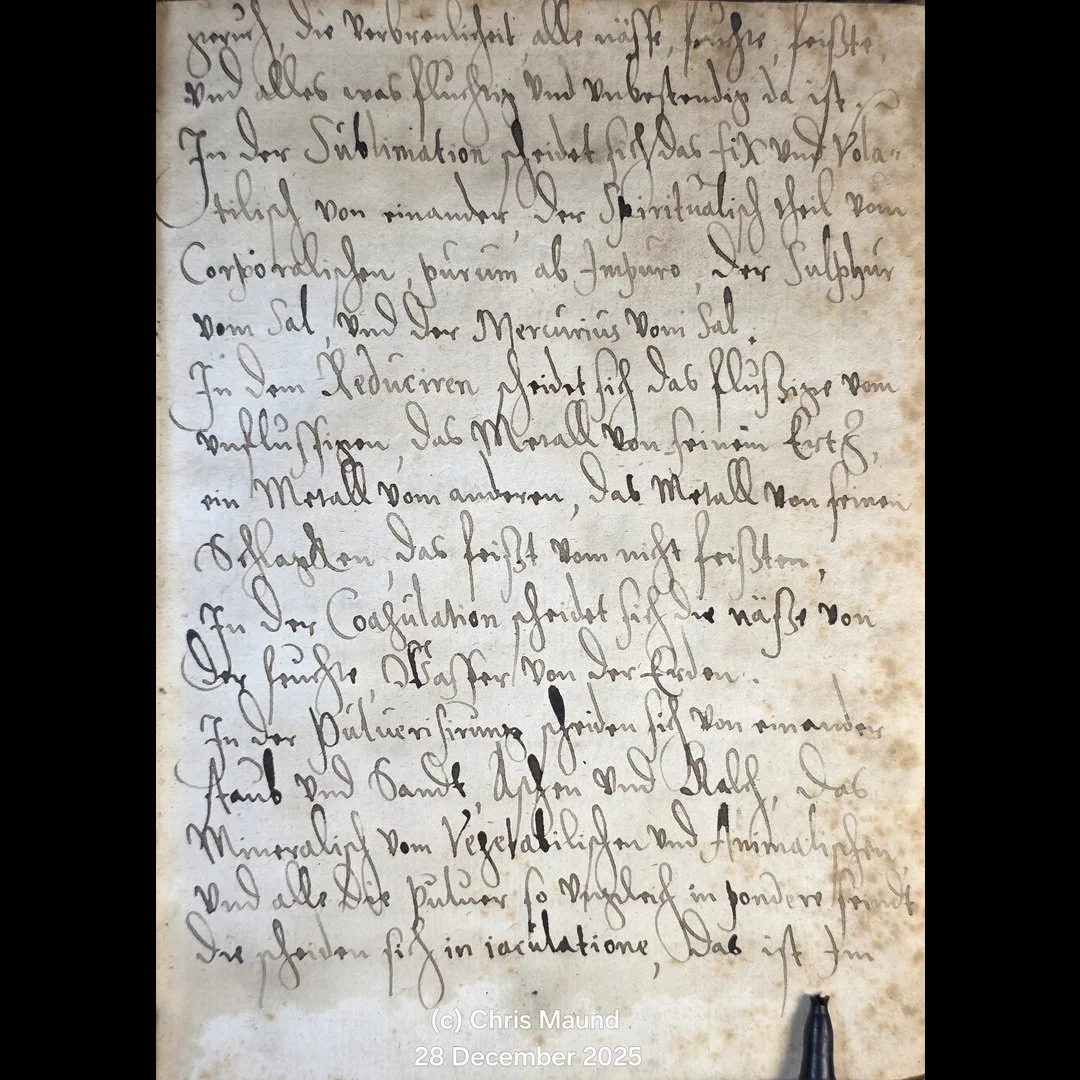 geruch, die Verbrenlicheit, alle nässe, feuchte, feißte,
vnd alles was fluchtig vnd vnbestendig da ist.
In der Sublimation scheidet sich das fix vnd Vola=
tilisch von einander, der Spiritualisch theil vom
Corporalischen, purum ab Impuro, der Sulphur
vom Sal, vnd der Mercurius vom Sal.
In dem Reduciren scheidet sich das flußige vom
vnflussigen, das Metall von seinem Ertz,
ein Metall vom anderen, das Metall von seinen
Schlagken, das feißt vom nicht feißten,
In der Coagulation scheidet sich die näße von
der feuchte, Wasser von der Erden.
In der Puluerisirung scheiden sich von einander
staub vnd Sandt, Aschen vnd Kalch, das
Mineralisch vom Vegetabilischen vnd Animalischen,
vnd alle die puluer so vngleich in pondere seindt
die scheiden sich in iaculatione, das ist Im
(c) Chris Maund
28 December 2025